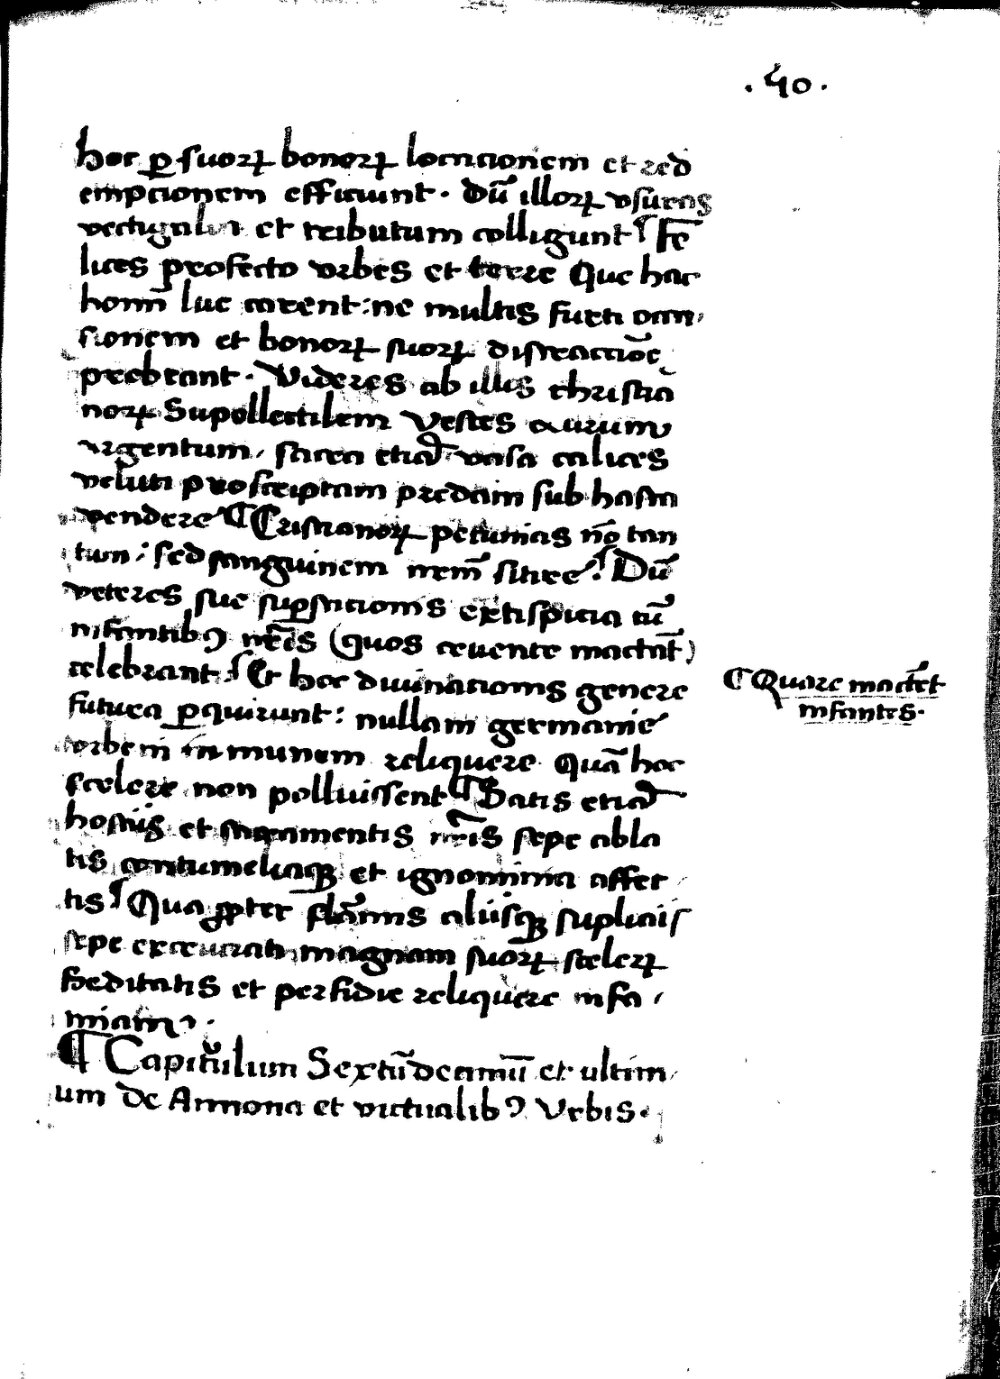 .40.
hoc ꝑ suoꝝ bonoꝝ locacionem et red
empcionem efficiunt . Dū illoꝝ vsuras
vectigalia et tributum colligunt ¶ Fe
lices profecto vrbes et terre que hac
homīn lue carent : ne multis furti occa
sionem et bonoꝝ suoꝝ distractiōe
prebeant . Videres ab illis christia
noꝝ Supellectilem vestes aurum
argentum , sacra etiā vasa calices
veluti proscriptam predam sub hasta
vendere ¶ Cristianoꝝ pecunias nō tan
tum : sed sanguinem nr̄m sitire ? Dū
veteres sue suꝑsticionis extispicia cū
infantibꝰ nr̄is (quos ceuente mactāt)
celebrant . Et hoc diuinacionis genere
futura ꝑquirunt : nullam germanie
vrbem in munem reliquere quā hoc
scelere non polluissent ¶ Datis etiā
hostiis et sacramentis nr̄is sepe abla
tis contumeliaqꝫ et ignominia affec
tis ¶ Qua ꝓpter flāmis aliisqꝫ supliciis
sepe excruciati magnam suoꝝ sceleꝝ
heditatis et perfidie reliquere infa
miam .
¶ Capitulum Sextūdecimū et ultim
um de Annona et victualibꝰ Vrbis .
¶ Quare mactēt
infantes .